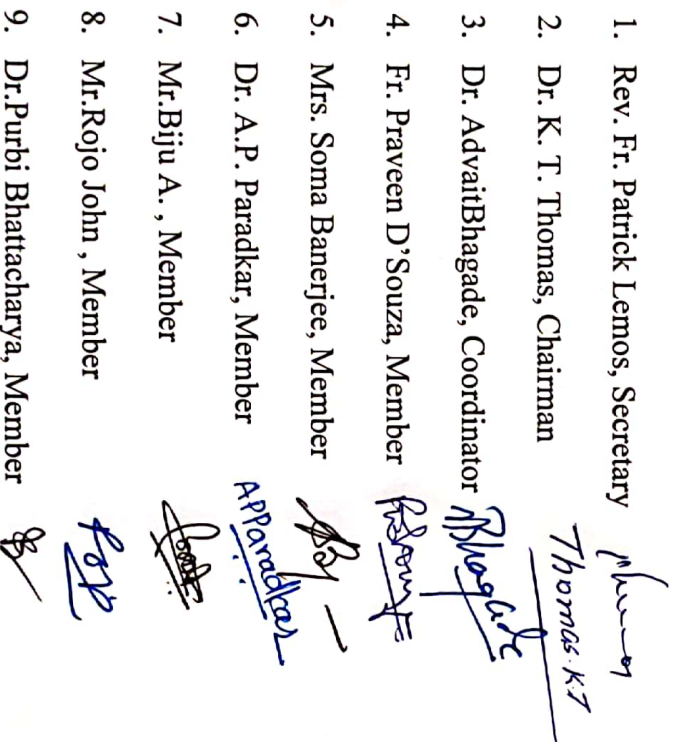 1. Rev. Fr. Patrick Lemos, Secretary
2. Dr. K. T. Thomas, Chairman Thomas.K.T
3. Dr. AdvaitBhagade, Coordinator Bhagade
4. Fr. Praveen D'Souza, Member
5. Mrs. Soma Banerjee, Member
6. Dr. A.P. Paradkar, Member APParadkar
7. Mr.Biju A. , Member
8. Mr.Rojo John , Member
9. Dr.Purbi Bhattacharya, Member